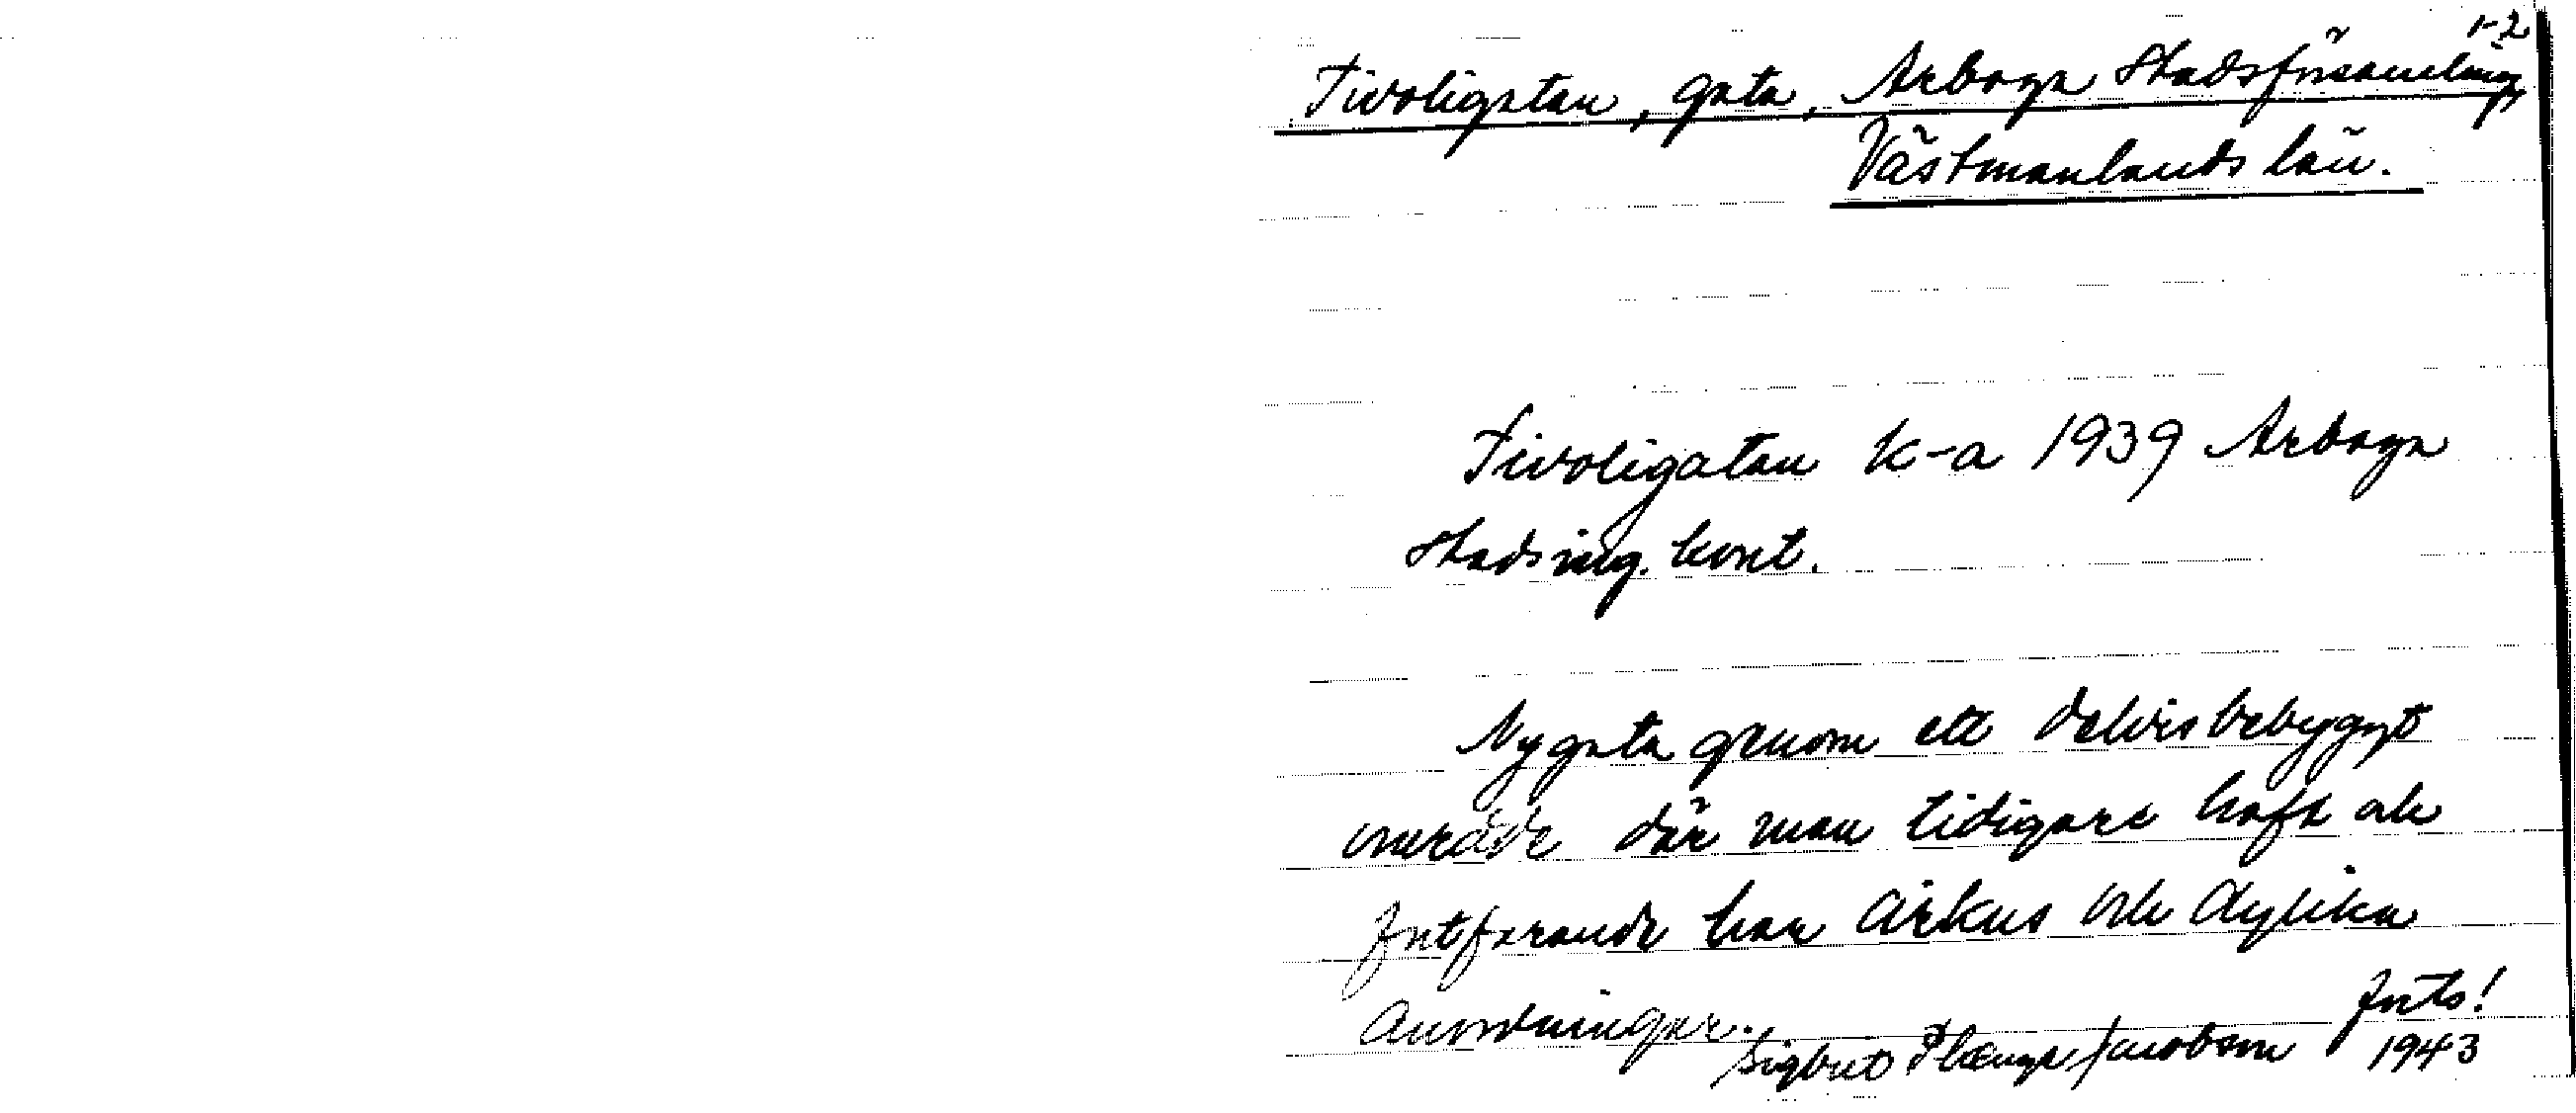 1-2
Tivoligatan, gata, Arboga Stadsförsamling
Västmanlands län.
Tivoligatan k-a 1939 Arboga
Stadsing. kont.
Ny gata genom ett delvis bebyggt
område där man tidigare haft och
fortfarande har cirkus och dylika
anordningar.
forts!
Sigbrit Plænge Jacobson 1943